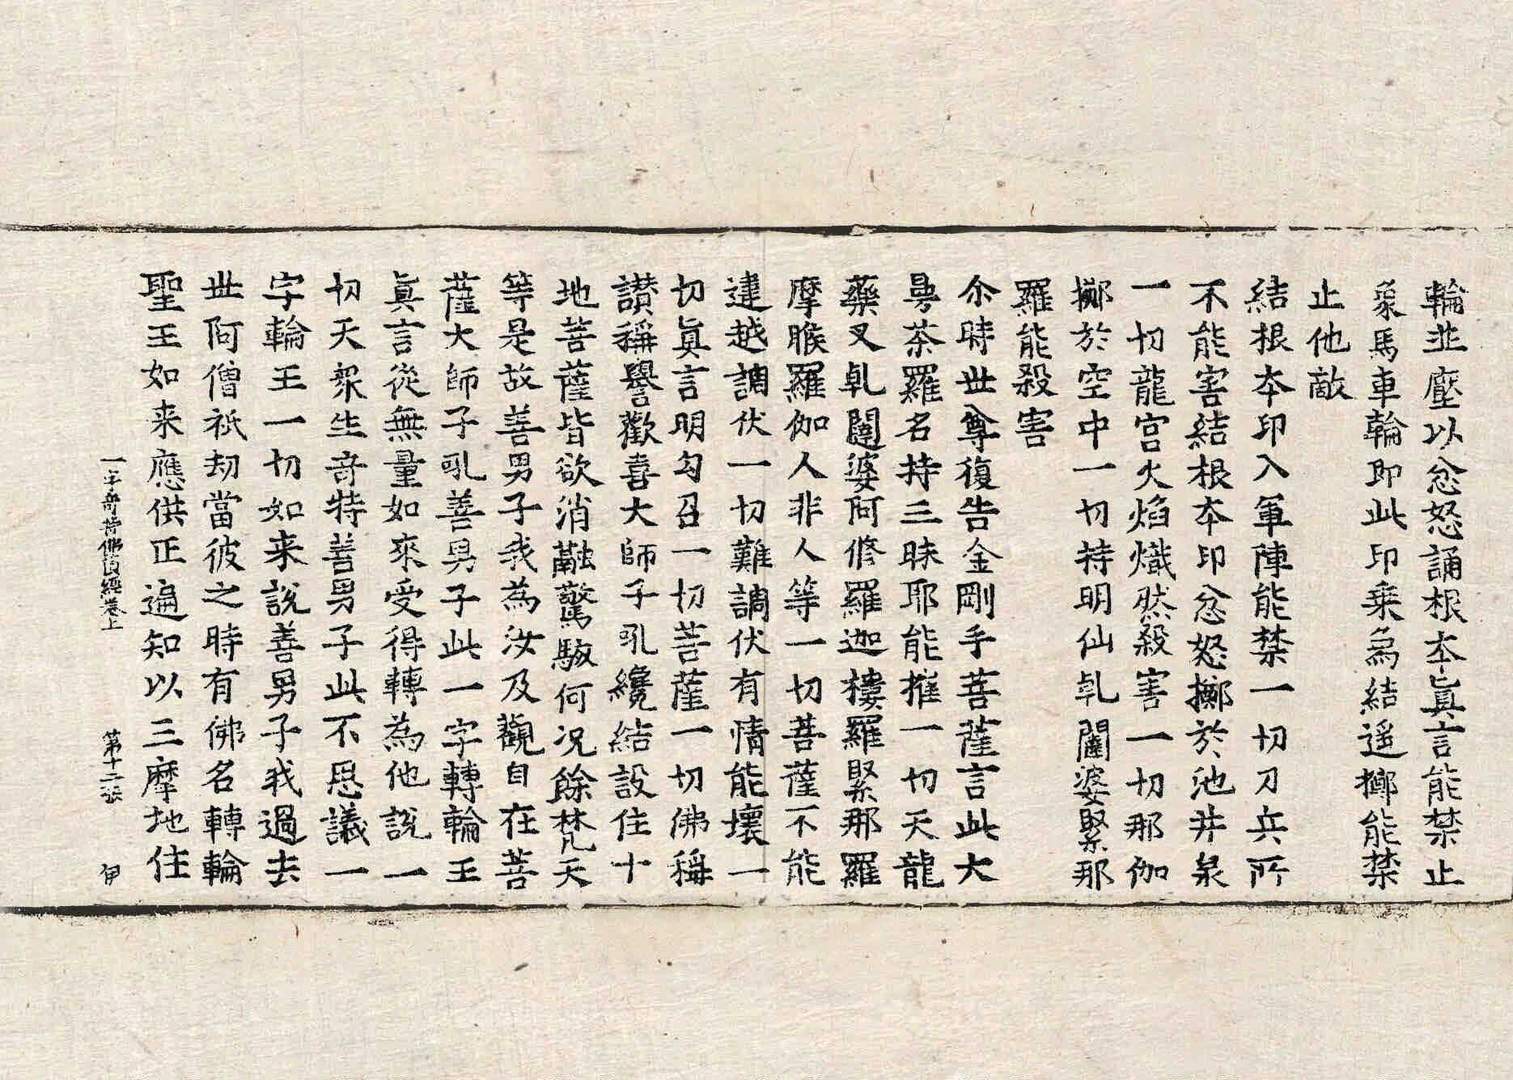 輪並壓以忿怒誦根本眞言能禁止
象馬車輪即此印乗急結遥擲能禁
止他敵
結根本印入軍陣能禁一切刀兵所
不能害結根本印忿怒擲於池井泉
一切龍宫火焰熾然殺害一切那伽
擲於空中一切持明仙乹闥婆緊那
羅能殺害
尒時世尊復告金剛手菩薩言此大
曼荼羅名持三昧耶能摧一切天龍
藥叉乹闥婆阿修羅迦樓羅緊那羅
摩睺羅伽人非人等一切菩薩不能
違越調伏一切難調伏有情能壞一
切眞言明勾召一切菩薩一切佛稱
讃稱譽歡喜大師子吼纔結設住十
地菩薩皆欲消融驚駭何况餘梵天
等是故善男子我為汝及觀自在菩
薩大師子吼善男子此一字轉輪王
眞言從無量如來受得轉為他說一
切天衆生竒特善男子此不思議一
字輪王一切如来說善男子我過去
世阿僧祇劫當彼之時有佛名轉輪
聖王如来應供正遍知以三摩地住
一字竒特佛頂經卷上 第十二張 伊